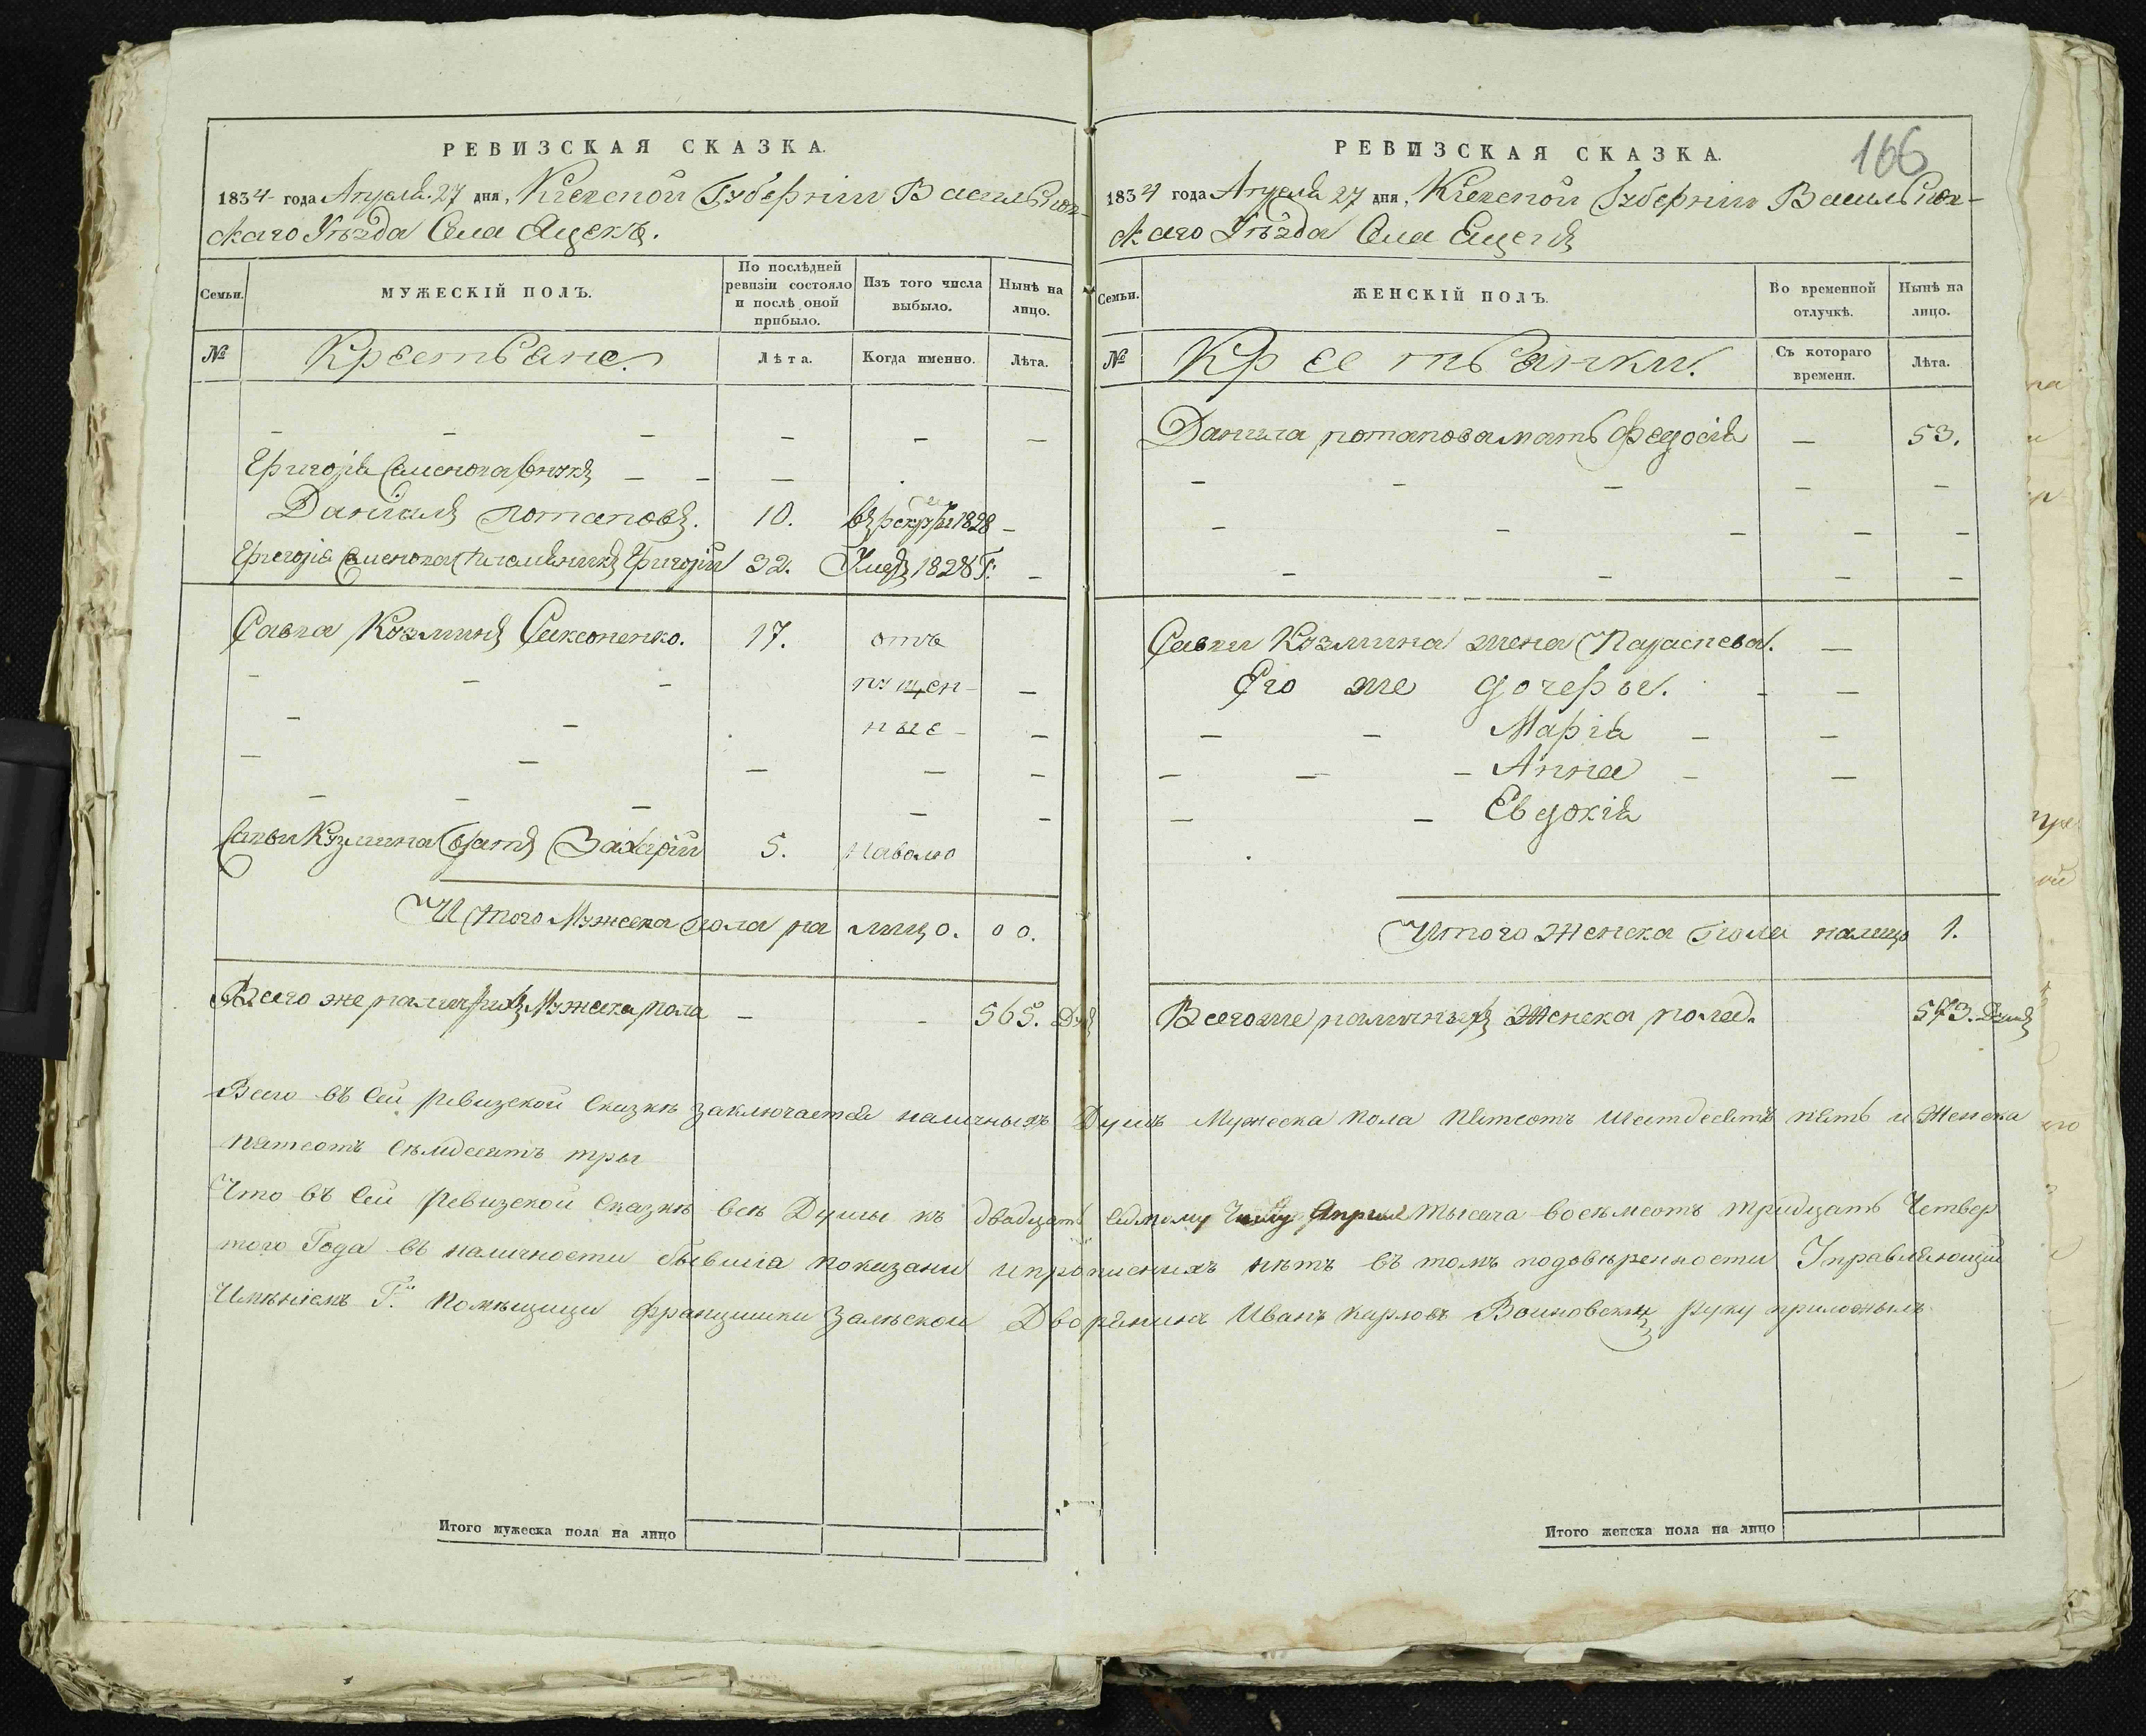 РЕВИЗСКАЯ СКАЗКА.
1834 года Апреля 27 дня, Кіевской Губерніи Васильков-
скаго Уѣзда Села Яцекъ.
Семьи.
МУЖЕСКІЙ ПОЛЪ.
По послѣдней ревизіи состояло и послѣ оной прибыло.
Изъ того числа выбыло.
Нынѣ на лицо.
№
Крестьяне.
Лѣта.
Когда именно.
Лѣта.
— — — — — —
Григорія Семенова внукъ — — —
Даніилъ Потаповъ. 10. въ рекр 1828 —
Григорія Семенова племѣнникъ Григорій 32. Умеръ 1828 Г: —
Савва Козминъ Саксоненко. 17. отъ
— — — пущен- —
— — ные- —
— — — — —
— — — — —
Саввы Кузмина братъ Захарій 5. наволю
Итого Мужеска пола на лицо. 00.
Всего же наличныхъ Мужеска пола — — 565. Душ
РЕВИЗСКАЯ СКАЗКА.
166
1834 года Апреля 27 дня, Кіевской Губерніи Васильков-
скаго Уѣзда Села Яцекъ
Семьи.
ЖЕНСКІЙ ПОЛЪ.
Во временной отлучкѣ.
Нынѣ на лицо.
№
Крестьянки.
Съ котораго времени.
Лѣта.
Данила Потапова мать Федосія — 53.
— — — — —
— — — — —
— — — —
Савви Козмина жена Параскева. —
Его же дочеры. — —
— — Марія — —
— — — Анна — —
— — Евдокія
Итого Женска пола налицо 1.
Всего же наличныхъ Женска пола. 573. Душъ
Всего въ сей ревизской сказкѣ заключается наличныхъ Душъ Мужеска пола пятсотъ шестдесятъ пять и Женска
пятсотъ семдесятъ тры
Что въ сей ревизской сказкѣ всѣ Душы къ двадцать седмому Числу Апреля тысяча восѣмсотъ тридцать Четвер
того Года въ наличности бывшіа показаны и прописныхъ нѣтъ въ томъ по довѣренности Управляющій
Имѣніемъ Г: Помѣщици Францишки Залѣской Дворянинъ Иванъ Карловъ Воиновскій руку приложылъ
Итого мужеска пола на лицо
Итого женска пола на лицо